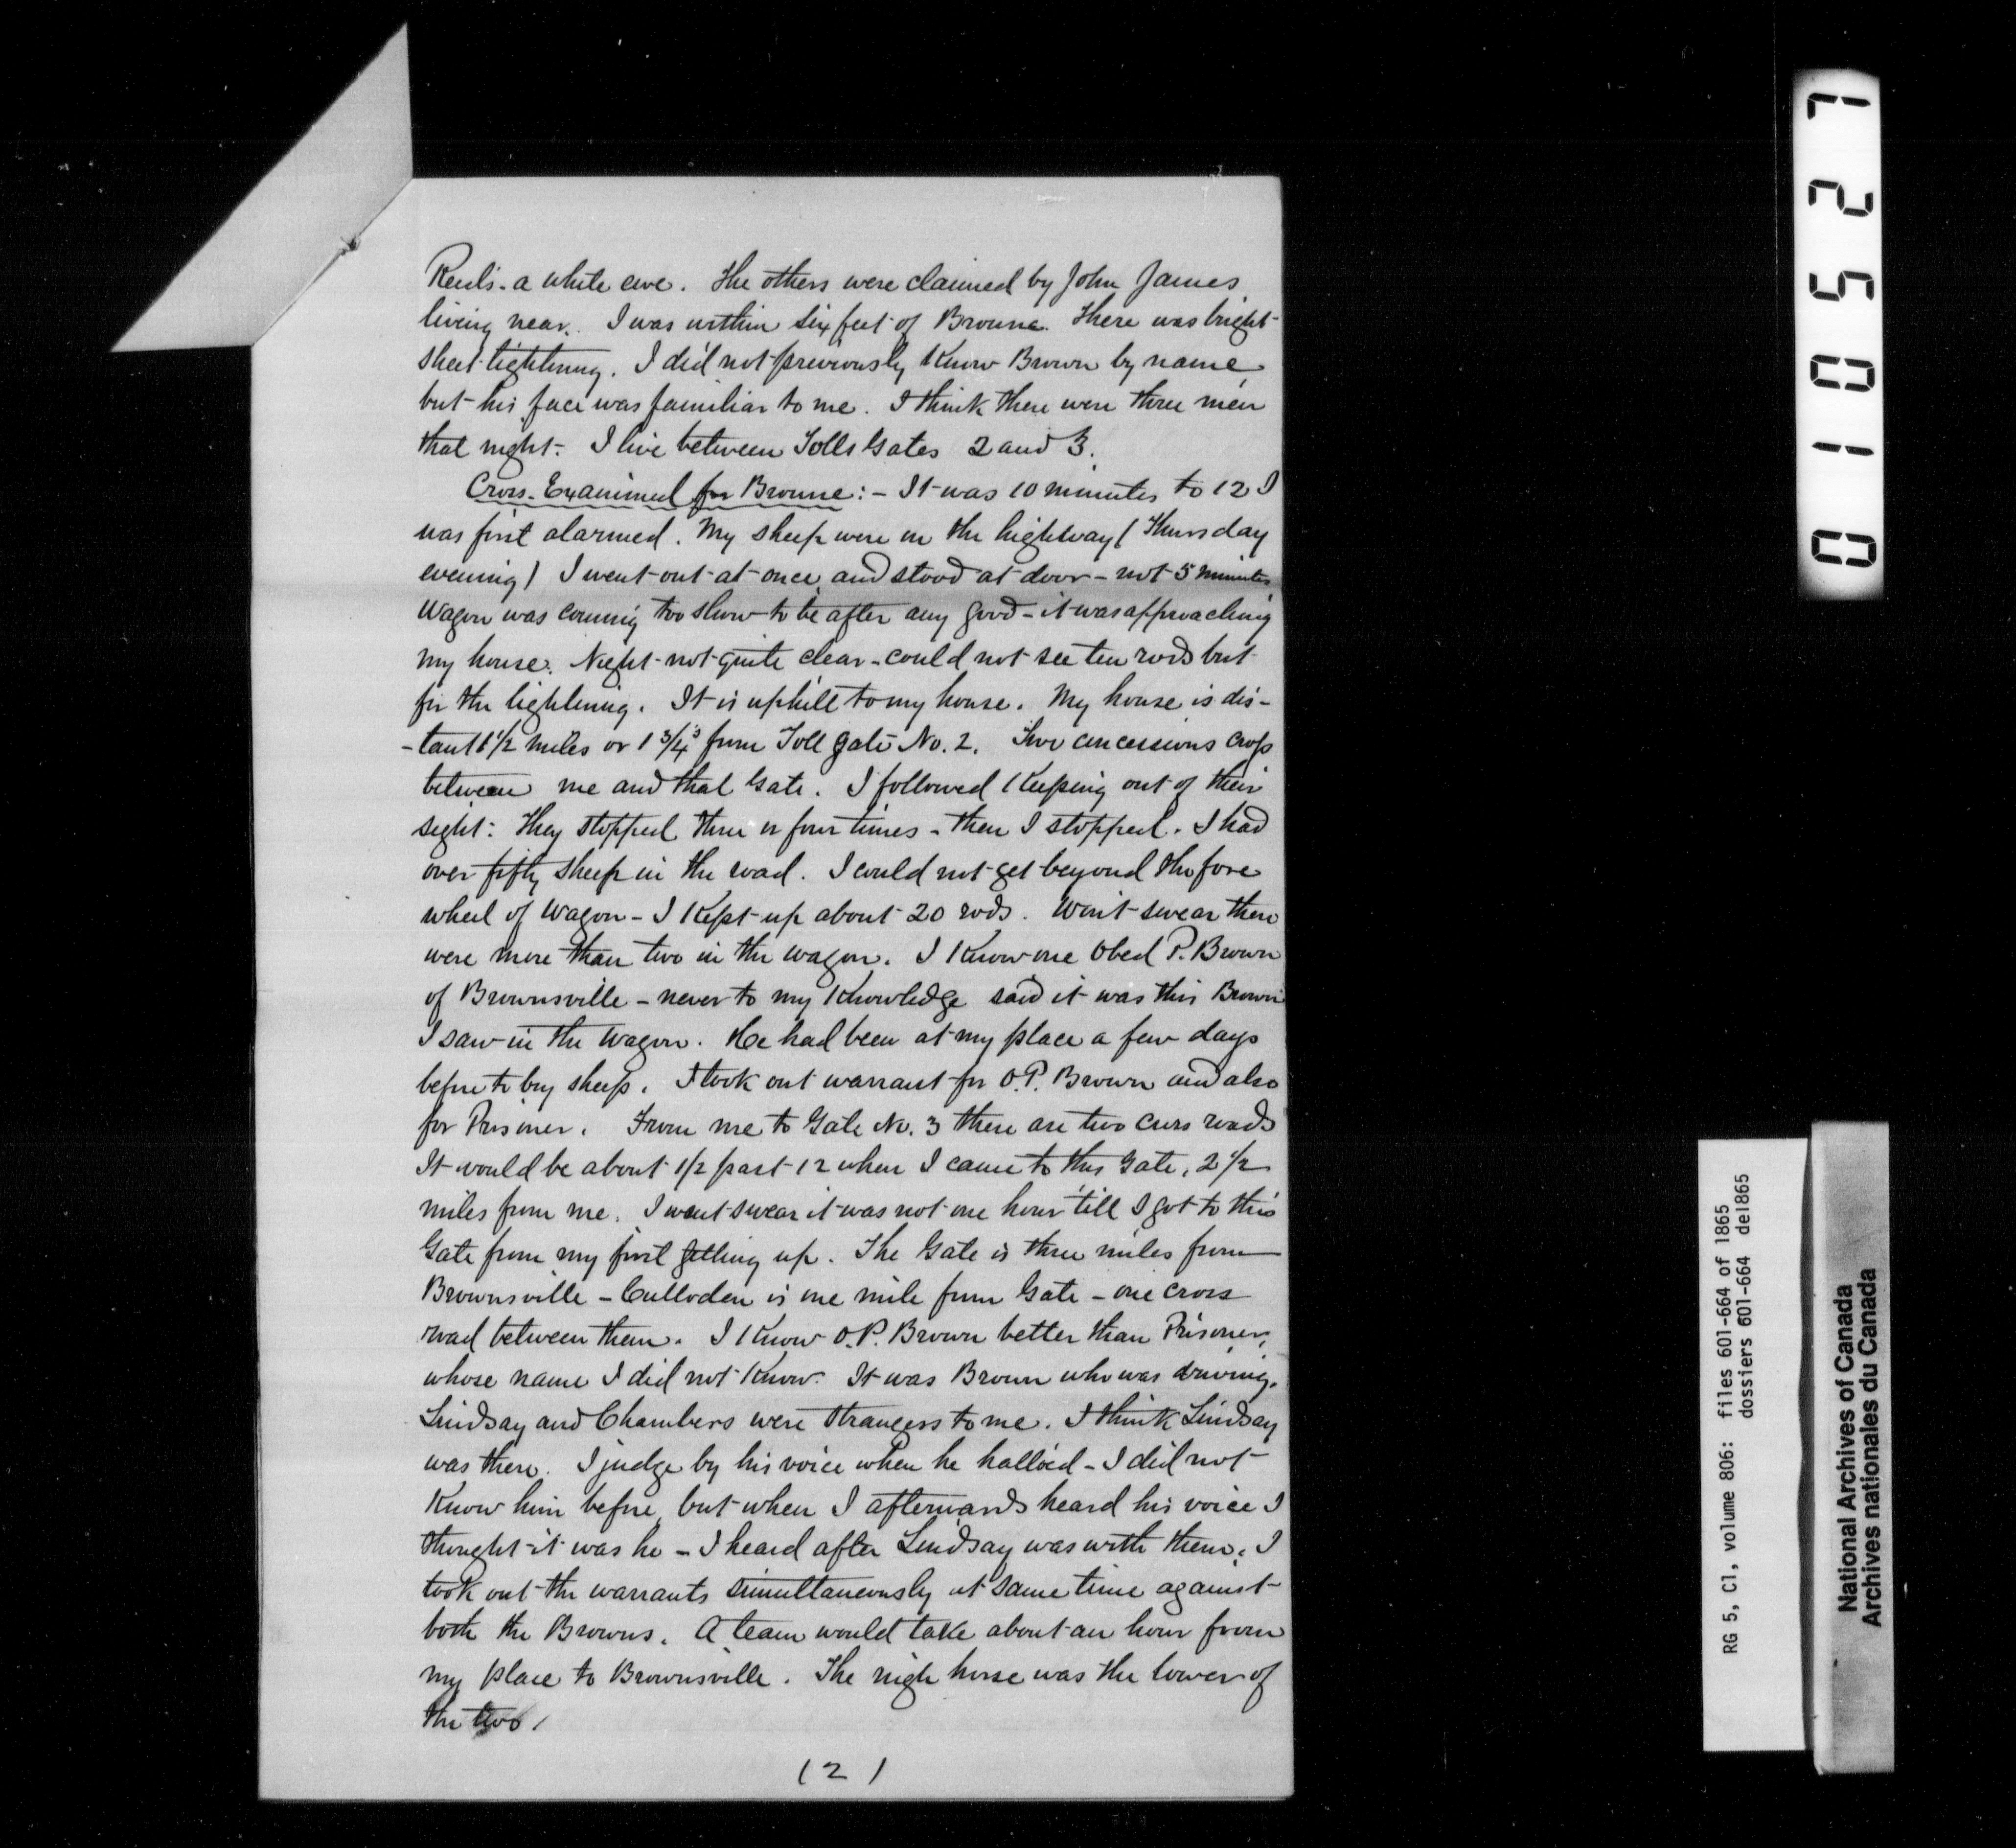 a white ewe. The others were claimed by John James
living near. I was within six feet of Browne. There was bright
sheet lightning. I did not previously know Brown by name,
but his face was familiar to me. I think there were three men
that night. I live between Tolls Gates 2 and 3.
Cross-Examined for Browne: - It was 10 minutes to 12 I
was first alarmed. My sheep were in the highway (Thursday
evening) I went out at once and stood at door - not 5 minutes
Wagon was coming too slow to be after any good - it was approaching
my house. Night not quite clear - could not see ten rods but
for the lightning. It is uphill to my house. My house is dis-
-tant 1 1/2 miles or 1 3/4s from Toll Gate No. 2. Two concessions cross
between me and that Gate. I followed keeping out of their
sight: They stopped three or four times - then I stopped. I had
over fifty sheep in the road. I could not get beyond the fore
wheel of wagon - I kept up about 20 rods. Won't swear there
were more than two in the wagon. I know one Obed P. Brown
of Brownsville - never to my knowledge said it was this Brown
I saw in the wagon. He had been at my place a few days
before to buy sheep. I took out warrant for O.P. Brown and also
for Prisoner. From me to Gate No. 3 there are two cross roads
It would be about 1/2 past 12 when I came to this Gate, 2 1/2
miles from me. I wont swear it was not one hour till I got to this
Gate from my first getting up. The Gate is three miles from
Brownsville - Culloden is one mile from Gate - one cross
road between them. I know O.P. Brown better than Prisoner,
whose name I did not know. It was Brown who was driving.
Lindsay and Chambers were strangers to me. I think Lindsay
was there. I judge by his voice when he hallo'ed - I did not
know him before, but when I afterwards heard his voice I
thought it was he - I heard after Lindsay was with them. I
took out the warrants simultaneously at same time against
both the Browns. A team would take about an hour from
my place to Brownsville. The nigh horse was the lower of
the two.
(2)
010527
RG 5, C1, volume 806: files 601-664 of 1865
dossiers 601-664 de1865
National Archives of Canada
Archives nationales du Canada